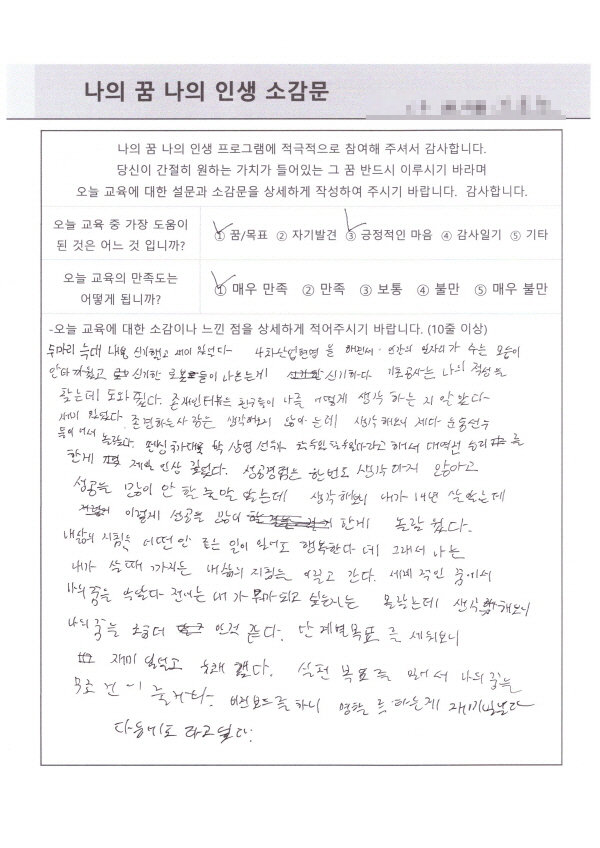 나의 꿈 나의 인생 소감문
나의 꿈 나의 인생 프로그램에 적극적으로 참여해 주셔서 감사합니다.
당신이 간절히 원하는 가치가 들어있는 그 꿈 반드시 이루시기 바라며
오늘 교육에 대한 설문과 소감문을 상세하게 작성하여 주시기 바랍니다. 감사합니다.
오늘 교육 중 가장 도움이
된 것은 어느 것 입니까?
① 꿈/목표 ② 자기발견 ③ 긍정적인 마음 ④ 감사일기 ⑤ 기타
오늘 교육의 만족도는
어떻게 됩니까?
① 매우 만족 ② 만족 ③ 보통 ④ 불만 ⑤ 매우 불만
-오늘 교육에 대한 소감이나 느낀 점을 상세하게 적어주시기 바랍니다. (10줄 이상)
두마리 늑대 내용 신기했고 재미 있었다- 4차산업혁명 을 해면서 인간의 일자리가 주는 모습이
안타까웠고 신기한 로봇들이 나오는게 신기하다 기초공사는 나의 적성을
찾는데 도와줬다. 존재인터뷰은 친구들이 나를 어떻게 생각 하는 지 알았다
재미 있었다. 존경하는사람은 생각해보지 않아는데 생각 해보니 제다 운동선수
들이어서 놀랐다. 펜싱 국가대표 박상영 선수가 할수있다 라고 해서 대역전 승리 를
한게 제일 인상 깊었다. 성공경험은 한번도 생각 하지 않아고
성공을 많이 안 한 줄만 알는데 생각해보니 내가 14년 살았는데
이렇게 성공을 많이 한게 놀라 웠다.
내삶의 지침은 어떤 안 좋은 일이 있어도 행복한다 데 그래서 나는
내가 살때 가치는 내 삶의 지침을 이끌고 간다. 세계 적인 꿈에서
나의 꿈을 전에는 내 가 뭐가 되고 싶은지는 몰랐는데 생각 해보니
나의 꿈을 조금더 단계별목표 를 세워보니
재미 있었고 실천 목표를 나의 꿈을
무조 건 이 비전보드를 하니 명함 를 하는게 재미있었다
다음에도 하고싶다.